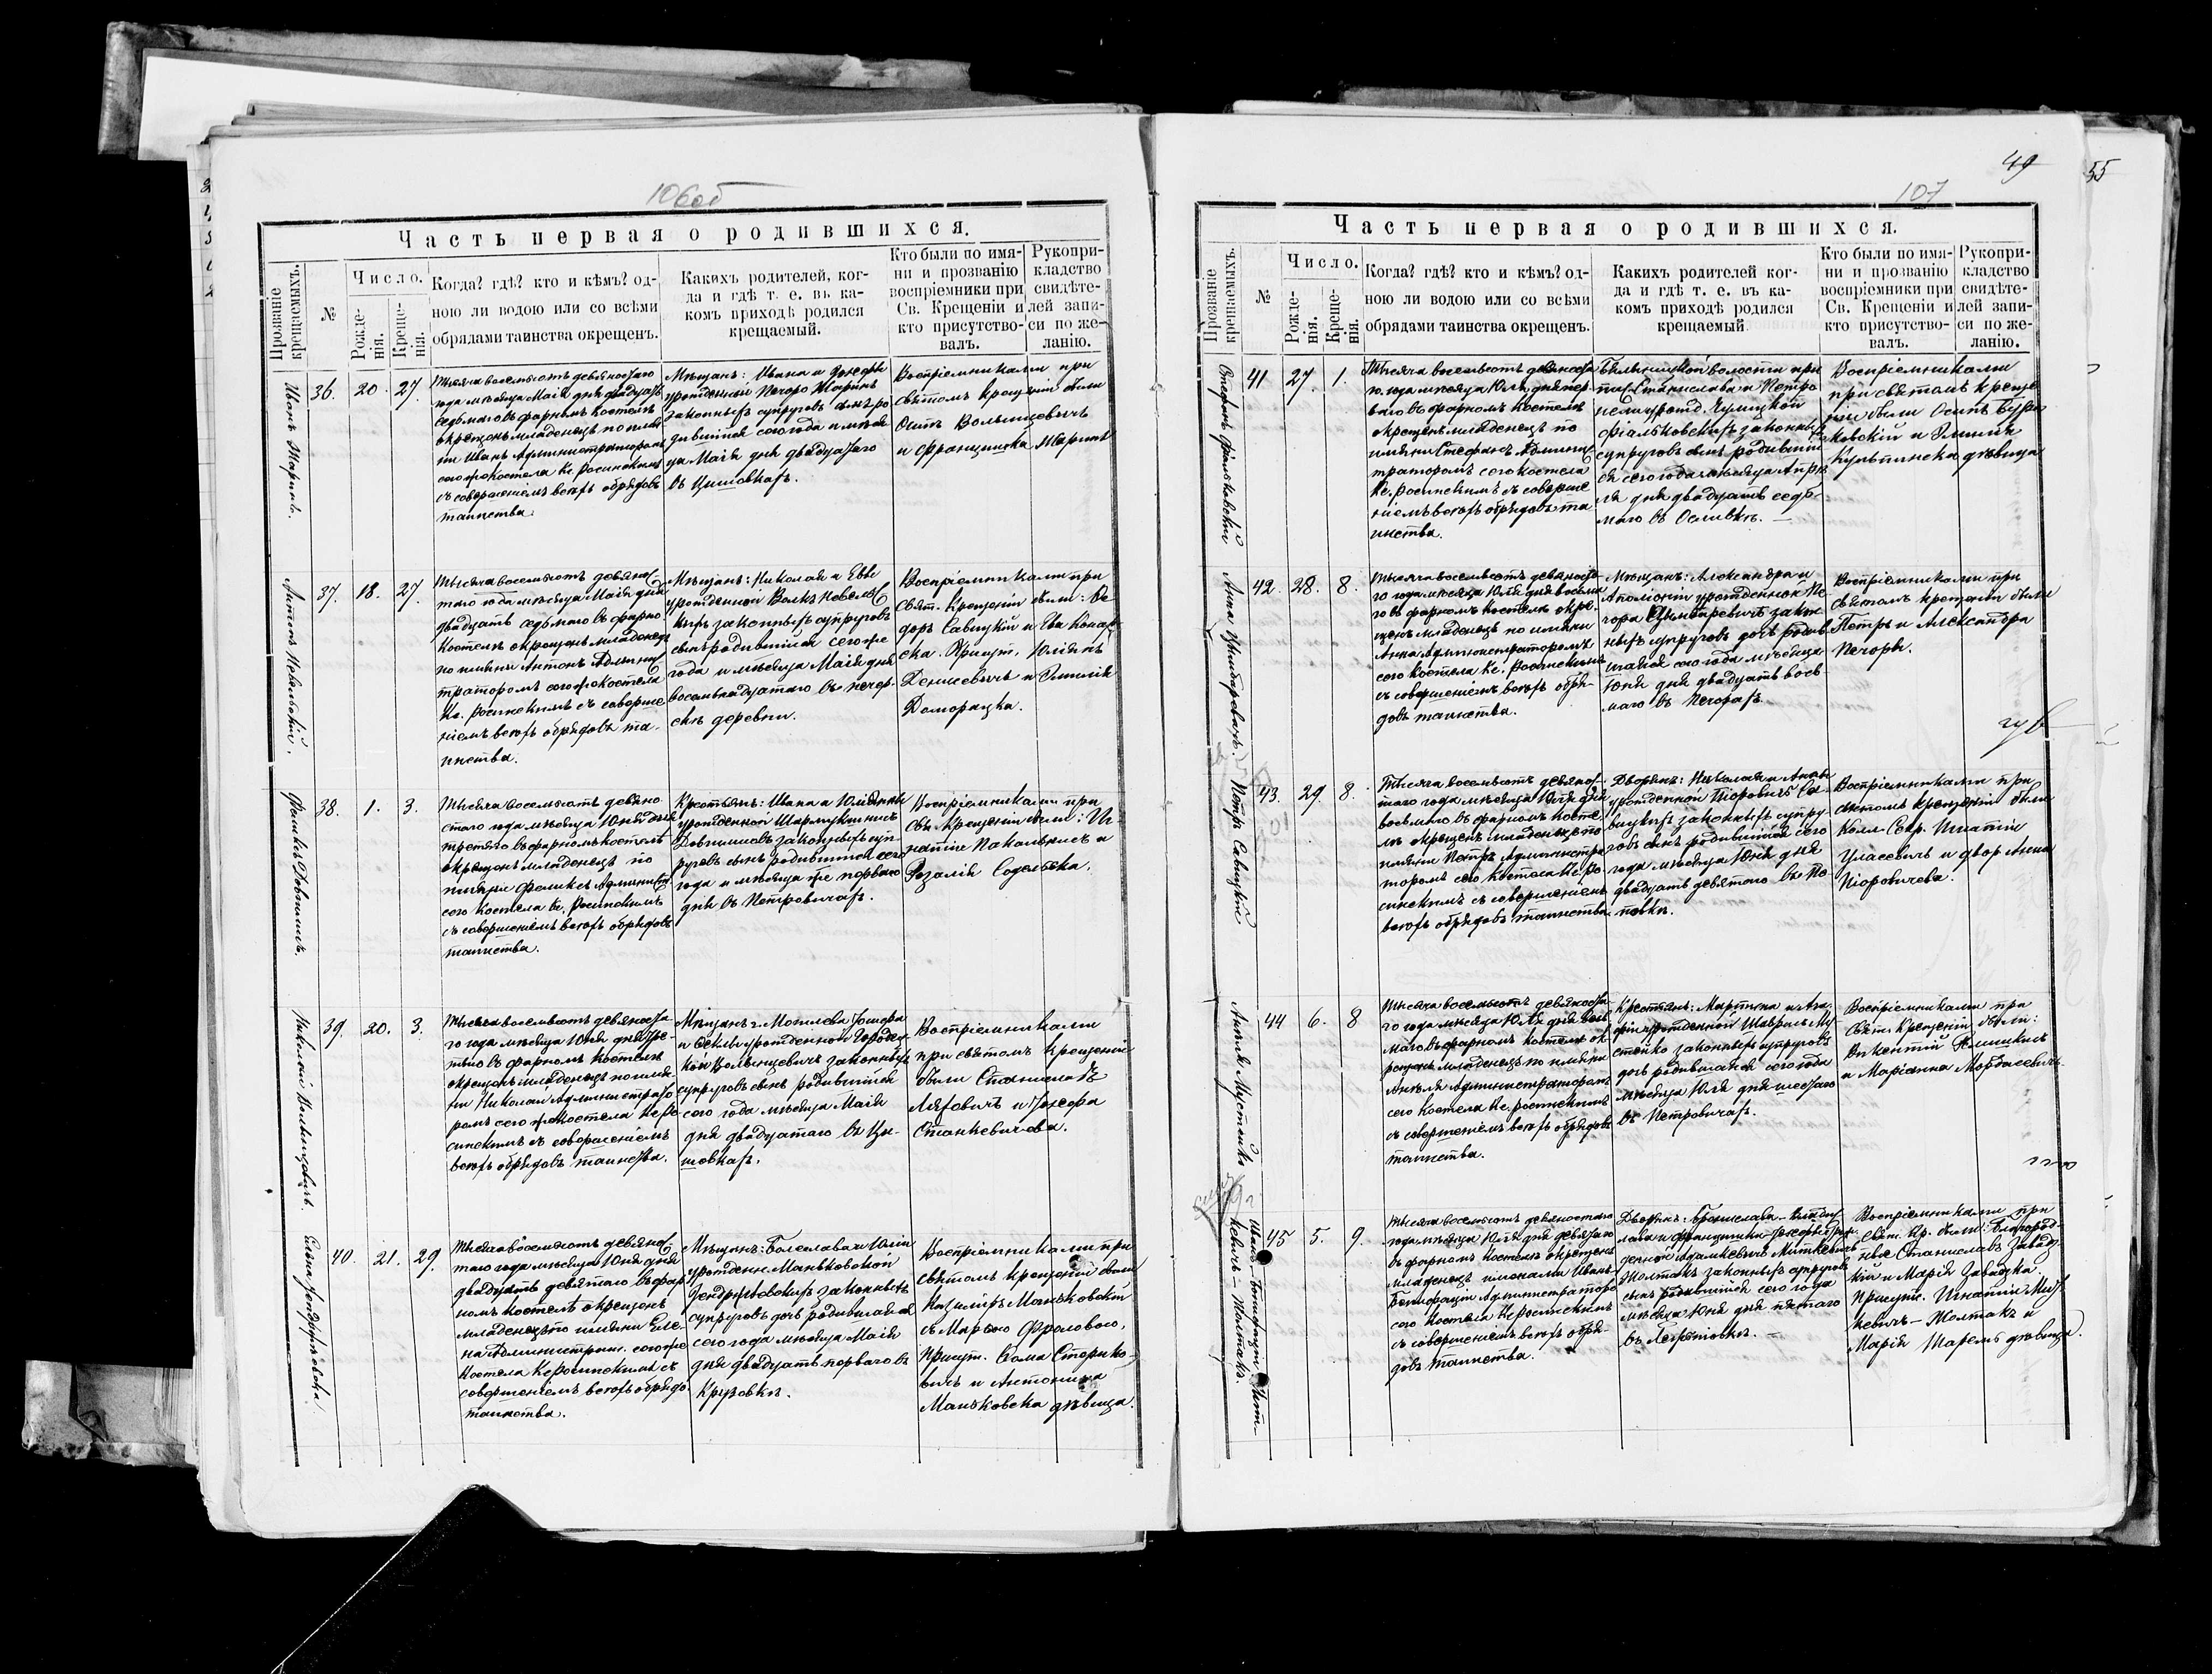 106об
Часть первая о родившихся.
Прозваніе крещаемыхъ.
№
Число.
Рожде-
нія.
Креще-
нія.
Когда? гдѣ? кто и кѣмъ? од-
ною ли водою или со всѣми
обрядами таинства окрещенъ.
Какихъ родителей, ког-
да и гдѣ т. е. въ ка-
комъ приходѣ родился
крещаемый.
Кто были по имя-
ни и прозванію
воспріемники при
Св. Крещеніи и
кто присутство-
валъ.
Рукопри-
кладство
свидѣте-
лей запи-
си по же-
ланію.
Иванъ Жаринъ.
36. 20. 27.
Тысяча восемьсотъ девяностаго
года мѣсяца Маія дня двадцать
седьмаго въ фарномъ костелѣ
окрещенъ младенецъ по имя-
ни Иванъ Администраторомъ
сего же костела Кс. Росинскимъ
съ совершеніемъ всѣхъ обрядовъ
таинства.
Мѣщанъ: Ивана и Юзефы
урожденной Печоро Жаринъ
законныхъ супруговъ сынъ ро-
дившійся сего года и мѣся-
ца Маія дня двадцатаго
въ Цишовкахъ.
Воспріемниками при
святомъ крещеніи были
Осипъ Волынцевичъ
и Франциска Жаринъ
Антонъ Невельскій.
37. 18. 27.
Тысяча восемьсотъ девянос
таго года мѣсяца Маія дня
двадцать седьмаго въ фарно
костелѣ окрещенъ младенецъ
по имяни Антонъ Админис
траторомъ сего же костела
Кс. Росинскимъ съ соверше
ніемъ всѣхъ обрядовъ та-
инства.
Мѣщанъ: Николая и Евы
урожденной Волкъ Невельс
кихъ законныхъ супруговъ
сынъ родившійся сего же
года и мѣсяца Маія дня
восемнадцатаго въ печер-
скѣ деревни.
Воспріемниками при
Свят. Крещеніи были: Фе-
доръ Савицкій и Ева Конар-
ска. Присут. Юліянъ
Денисевичъ и Эмилія
Доморацка.
Феликсъ Довгишъ.
38. 1. 3.
Тысяча восемьсотъ девяно
стаго года мѣсяца Юнія дня
третяго въ фарномъ костелѣ
окрещенъ младенецъ по
имяни Феликсъ Админист
сего Костела Кс. Росинскимъ
съ совершеніемъ всѣхъ обрядовъ
таинства.
Крестьянъ: Ивана и Юліянны
урожденной
законныхъ суп-
руговъ сынъ родившійся сего
года и мѣсяца же перваго
дня въ Петровичахъ.
Воспріемниками при
Св. Крещеніи были: Иг-
натіи и
Розалія
Николай Волынцевичъ.
39. 20. 3.
Тысяча восемьсотъ девяноста
го года мѣсяца Юнія дня тре-
тяго въ фарномъ костелѣ
окрещенъ младенецъ по имя
ни Николай Администрато
ромъ сего же костела Кс Ро
синскимъ съ совершеніемъ
всѣхъ обрядовъ таинства.
Мѣщанъ г. Могилева Іосифа
и урожденной Городец-
кой Волынцевичъ законныхъ
супруговъ сынъ родившійся
сего года мѣсяца Маія
дня двадцатаго въ Ци-
шовкахъ.
Воспріемниками
при святомъ крещеніи
были Станиславъ
Ляховичъ и Юзефа
Станкевичова.
Елена Гендржіевска.
40. 21. 29.
Тысяча восемьсотъ девянос
таго года мѣсяца Юнія дня
двадцать девятаго въ фар
номъ костелѣ окрещенъ
младенецъ по имяни Еле-
на Администрат. сего же
Костела Кс Росинскимъ съ
совершеніемъ всѣхъ обрядо.
таинства.
Мѣщанъ: Болеслава и Юліи
урожденн. Маньковской
Гендржіевскихъ законныхъ
супруговъ дочь родившаяся
сего года мѣсяца Маія
дня двадцать перваго въ
Крузовкѣ.
Воспріемниками при
святомъ крещеніи были
Казиміръ Маньковскій
съ Маріею Фроловою,
Присут. Сторико-
вичъ и Антонина
Маньковска дѣвица.
49
55
107
Часть первая о родившихся.
Прозваніе крещаемыхъ.
№
Число.
Рожде-
нія.
Креще-
нія.
Когда? гдѣ? кто и кѣмъ? од-
ною ли водою или со всѣми
обрядами таинства окрещенъ.
Какихъ родителей ког-
да и гдѣ т. е. въ ка-
комъ приходѣ родился
крещаемый
Кто были по имя-
ни и прозванію
воспріемники при
Св. Крещеніи и
кто присутство-
валъ.
Рукопри-
кладство
свидѣте-
лей запи-
си по же-
ланію.
Стефанъ Фіалковскій
41 27. 1.
Тысяча восемьсотъ девяноста
го года мѣсяца Юля, дня пер-
ваго въ фарномъ Костелѣ
окрещенъ младенецъ по
имяни Стефанъ Админис
траторомъ сего костела
Кс. Росинскимъ съ соверше
ніемъ всѣхъ обрядовъ та
инства.
волости при
пис. Станислава и Петро
нели урожд. Чулицкой
Фіалковскихъ законныхъ
супруговъ сынъ родившій
ся сего года мѣсяца Апрѣ
ля дня двадцать седь-
маго въ Осливкѣ.
Воспріемниками
при святомъ креще
ніи были Осипъ
и Эмилія
Кульпинска дѣвица
Анна Цимбаревичъ.
42. 28. 8.
Тысяча восемьсотъ девяноста
го года мѣсяца Юля дня восьма
го въ фарномъ костелѣ окре-
щенъ младенецъ по имяни
Анна Администраторомъ
сего Костела Кс. Росинскимъ
съ совершеніемъ всѣхъ обря-
довъ таинства.
Мѣщанъ: Александра и
Аполоніи урожденной Пе
чора Цимбаревичъ закон
ныхъ супруговъ дочь родив
шаяся сего года мѣсяца
Юнія дня двадцать вось-
маго въ Печорахъ.
Воспріемниками при
святомъ крещеніи были
Петръ и Александра
Печоры.
Петръ Савицкій
43. 29. 8.
Тысяча восемьсотъ девянос-
таго года мѣсяца Юля дня
восьмаго въ фарномъ косте
лѣ окрещенъ младенецъ по
имяни Петръ Администра
торомъ сего костела Кс. Ро
синскимъ съ совершеніемъ
всѣхъ обрядовъ таинства.
Дворянъ: Николая и Анны
урожденной Піоровичъ Са-
вицкихъ законныхъ супру-
говъ сынъ родившійся сего
года мѣсяца Юнія дня
двадцать девятаго въ По
повкѣ.
Воспріемниками при
святомъ крещеніи были
Колл. Секр. Игнатій
Уласевичъ и двор Анна
Піоровичева.
Анеля Мустейко
44 6. 8
Тысяча восемьсотъ девяноста
го года мѣсяца Юля дня вось
маго въ фарномъ костелѣ ок
рещенъ младенецъ по имяни
Анеля Администраторомъ
сего Костела Кс. росинскимъ
съ совершеніемъ всѣхъ обрядовъ
таинства.
Крестьянъ: Мартина и Ага-
фіи урожденной Му
стейко законныхъ супруговъ
дочь родившаяся сего года
мѣсяца Юля дня шестаго
въ Петровичахъ.
Воспріемниками при
Свят. Крещеніи были:
Викентій Климикисъ
и Маріанна Мордасевичъ.
Иванъ-Бонифацій Мит-
кевичъ-Жолтакъ.
45 5. 9.
Тысяча восемьсотъ девяностаго
года мѣсяца Юля дня девятаго
въ фарномъ Костелѣ окрещенъ
младенецъ именами Иванъ-
Бонифацій Администраторо
сего Костела Кс Росинскимъ
съ совершеніемъ всѣхъ обря-
довъ таинства.
Дворянъ: Бронислава-Влади-
слава и Францишки Юзефы урож-
денной Адамкевичъ Миткевичъ-
Жолтакъ законныхъ супруговъ
сынъ родившійся сего года
мѣсяца Юнія дня пятаго
въ
Воспріемниками при
Свят. Кр. были: Благород-
ные Станиславъ Завад-
кій и Марія Завадзка.
Присутс. Игнатій Мит
кевичъ-Жолтакъ и
Марія дѣвица.